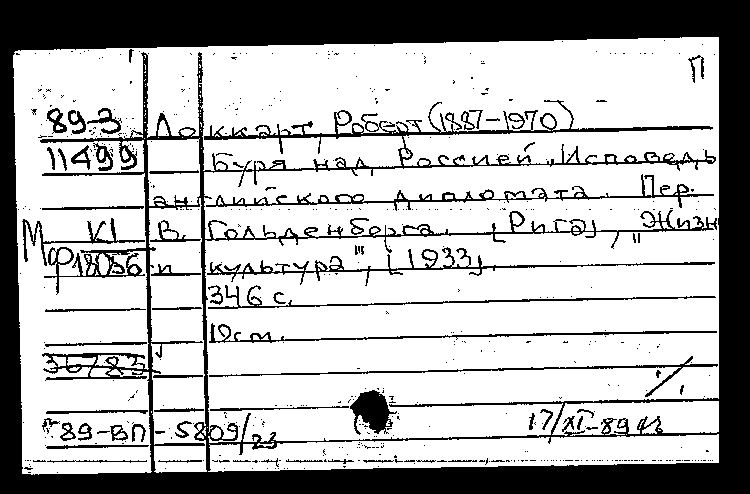 П
89-3 Локкарт, Роберт (1887-1970)
11499 Буря над Россией. Исповедь
английского дипломата. Пер.
К1 В. Гольденберга. [Рига], "Жизнь
Мф 18056 и культура", [1933].
346 с.
19см.
36783
89-ВП-5809/23 17/XI-89